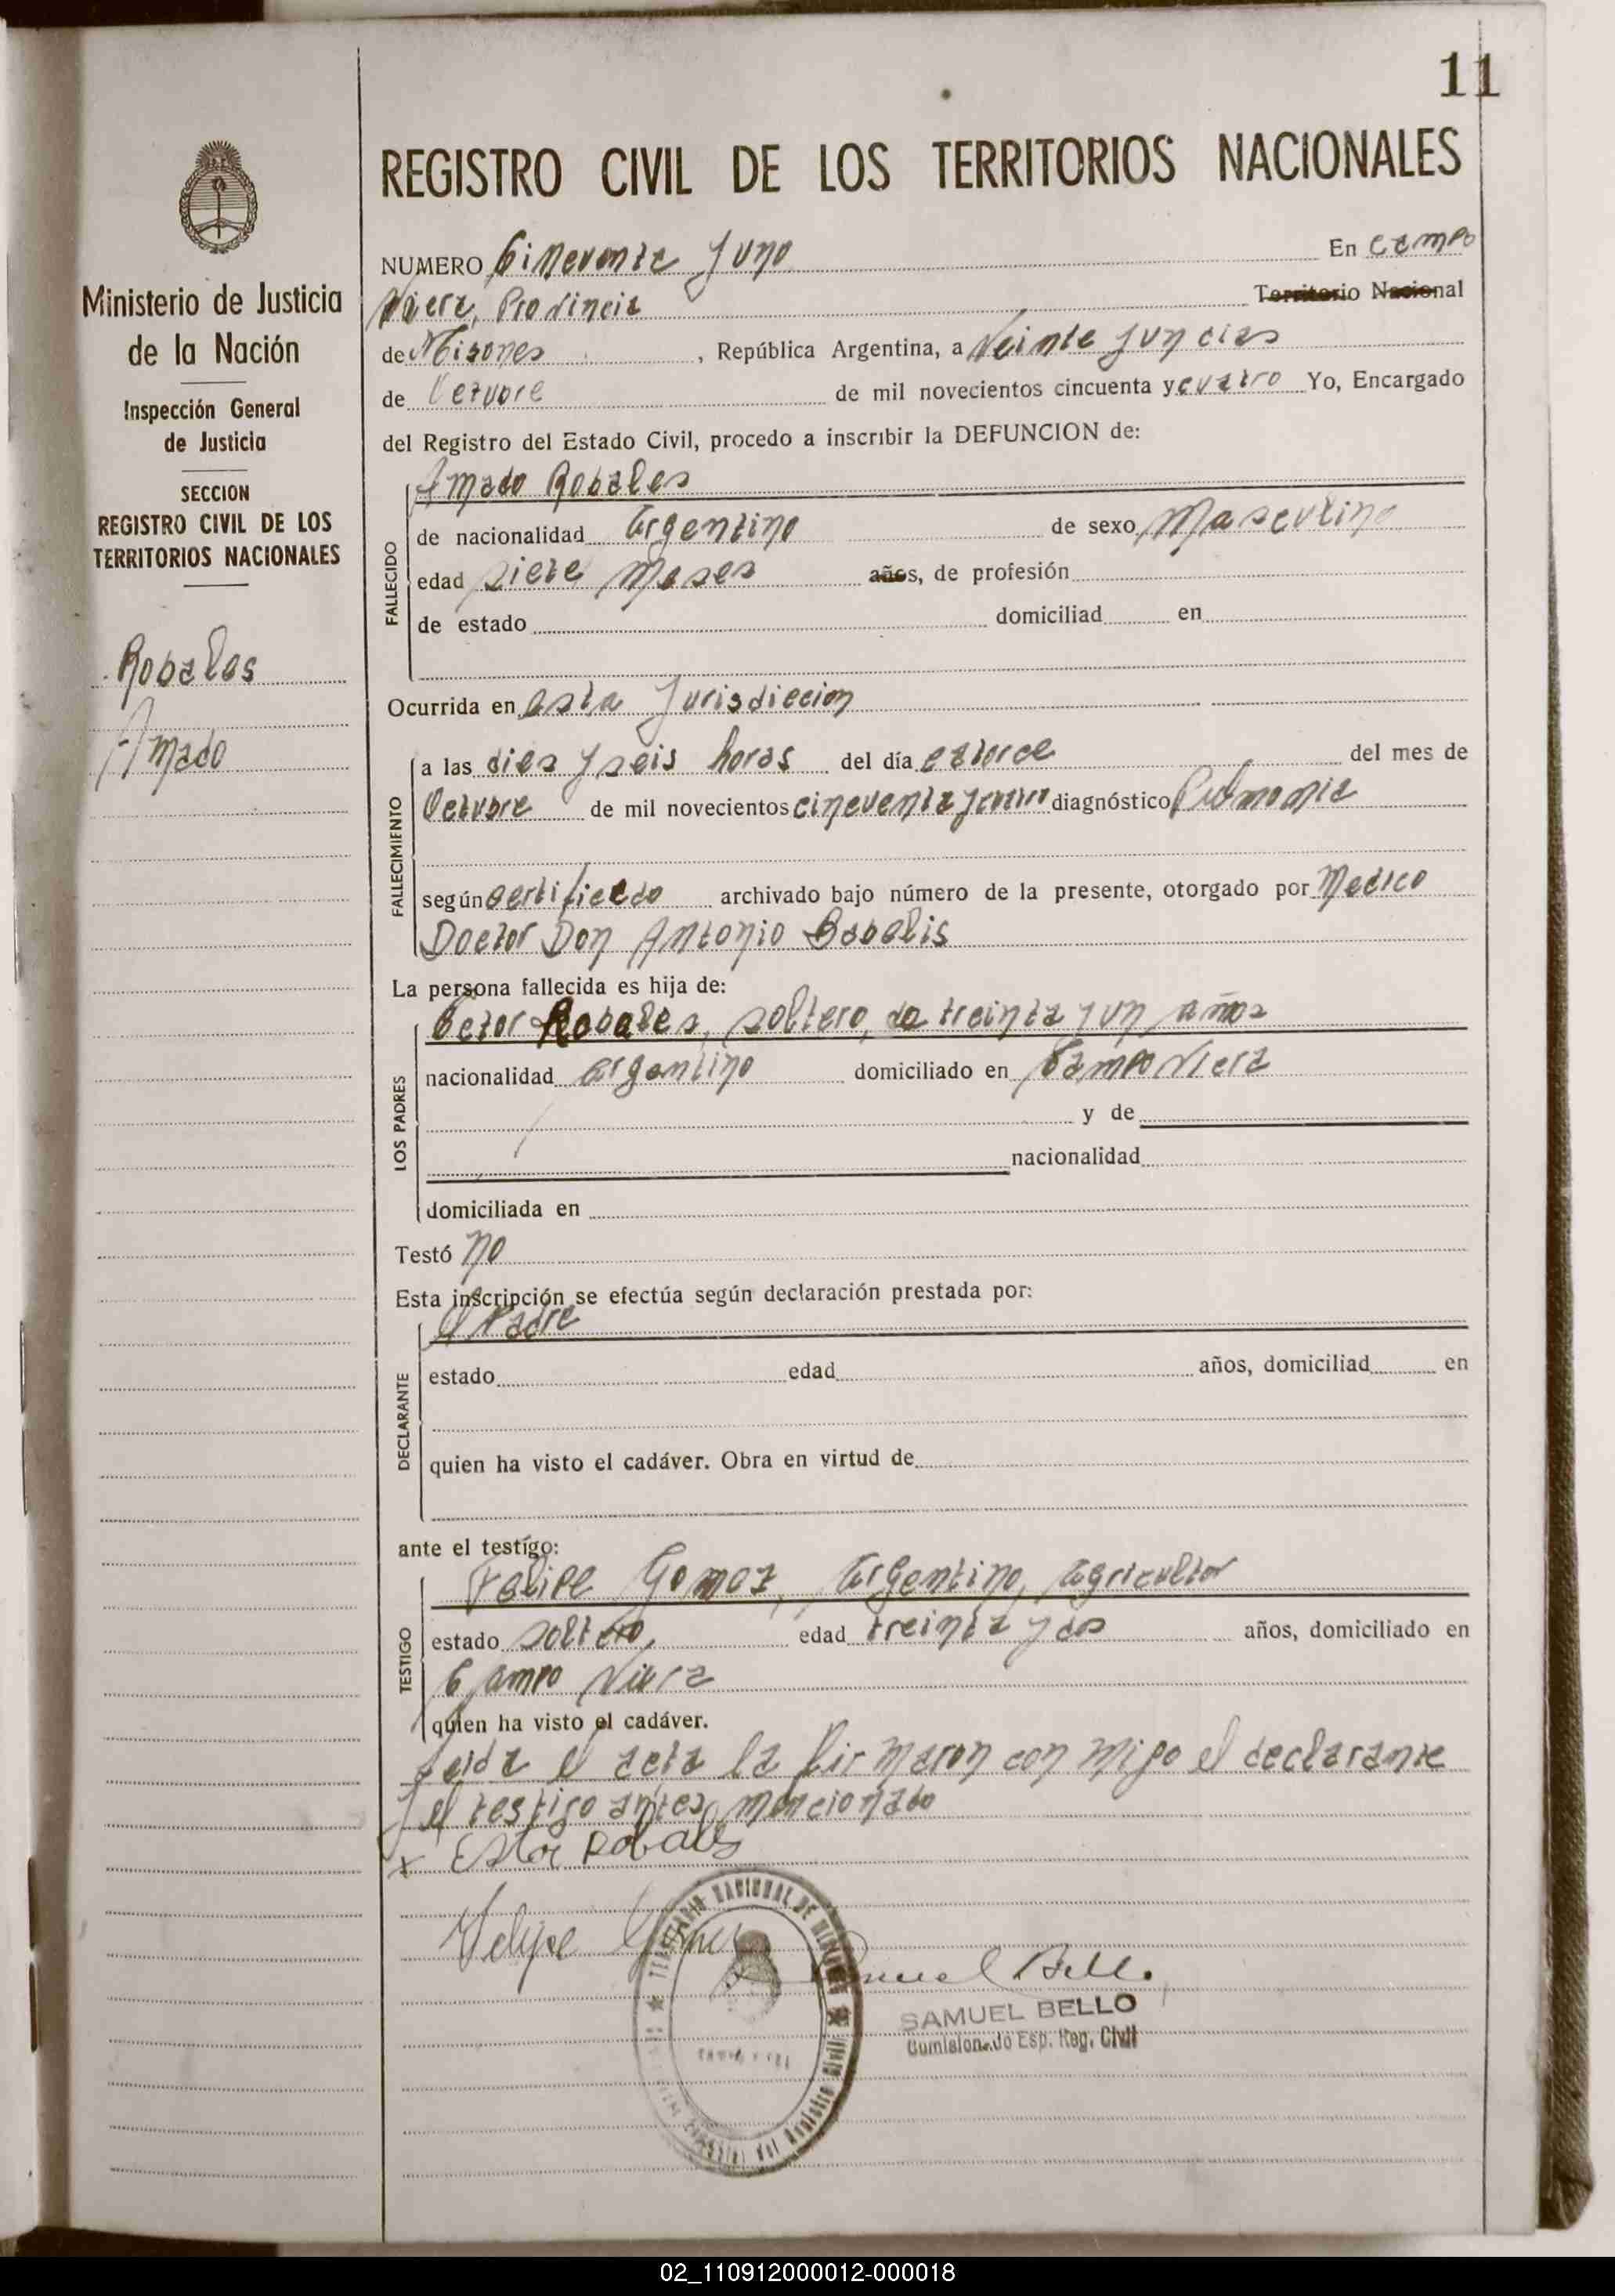 11
REGISTRO CIVIL DE LOS TERRITORIOS NACIONALES
Ministerio de Justicia
de la Nación
Inspección General
de Justicia
SECCION
REGISTRO CIVIL DE LOS
TERRITORIOS NACIONALES
Robales
Amado
NUMERO Cincuenta y uno En Campo
Viera, Provincia Territorio Nacional
de Misiones , República Argentina, a Veinte y un dias
de Octubre de mil novecientos cincuenta y cuatro Yo, Encargado
del Registro del Estado Civil, procedo a inscribir la DEFUNCION de:
Amado Robales
FALLECIDO
de nacionalidad argentino de sexo Masculino
edad siete meses años, de profesión
de estado domiciliad en
Ocurrida en esta Jurisdiccion
FALLECIMIENTO
a las dies y seis horas del día catorce del mes de
Octubre de mil novecientos cincuenta y cuatro diagnóstico Pulmonia
según certificado archivado bajo número de la presente, otorgado por Medico
Doctor Don Antonio
La persona fallecida es hija de:
LOS PADRES
Robales, soltero, de treinta y un años
nacionalidad argentino domiciliado en Campo Viera
y de
nacionalidad
domiciliada en
Testó no
Esta inscripción se efectúa según declaración prestada por:
DECLARANTE
el Padre
estado edad años, domiciliad en
quien ha visto el cadáver. Obra en virtud de
ante el testigo:
TESTIGO
Felipe Gomez, argentino, agricultor
estado soltero, edad treinta y dos años, domiciliado en
Campo Viera
quien ha visto el cadáver.
Leida el acta la firmaron con migo el declarante
y el testigo antes mencionado
x Estor Robales
Felipe Gomez
Samuel Bello
TERRITORIO NACIONAL DE MISIONES
del Registro Civil
SAMUEL BELLO
Comisionado Esp. Reg. Civil
02_110912000012-000018